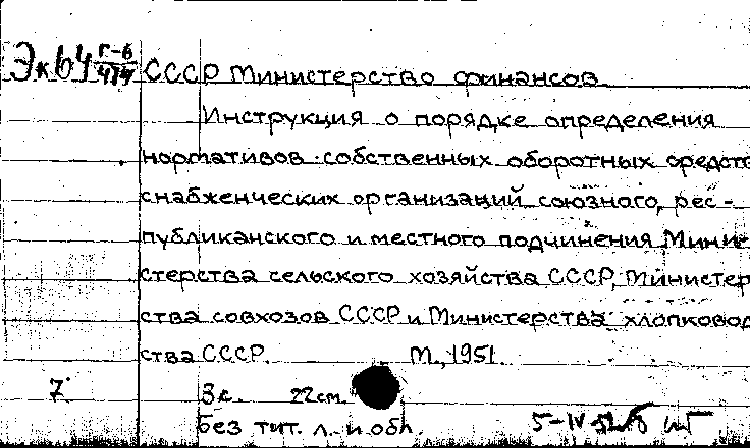 Эк64 Г-6/414 СССР Министерство финансов
Инструкция о порядке определения
нормативов собственных оборотных средств
снабженческих организаций союзного, рес-
публиканского и местного подчинения Мини-
стерства сельского хозяйства СССР, Министер
ства совхозов СССР и Министерства хлопковод
ства СССР. М., 1951.
7. 3с. 22см.
Без тит. л. и обл.
5-IV 52